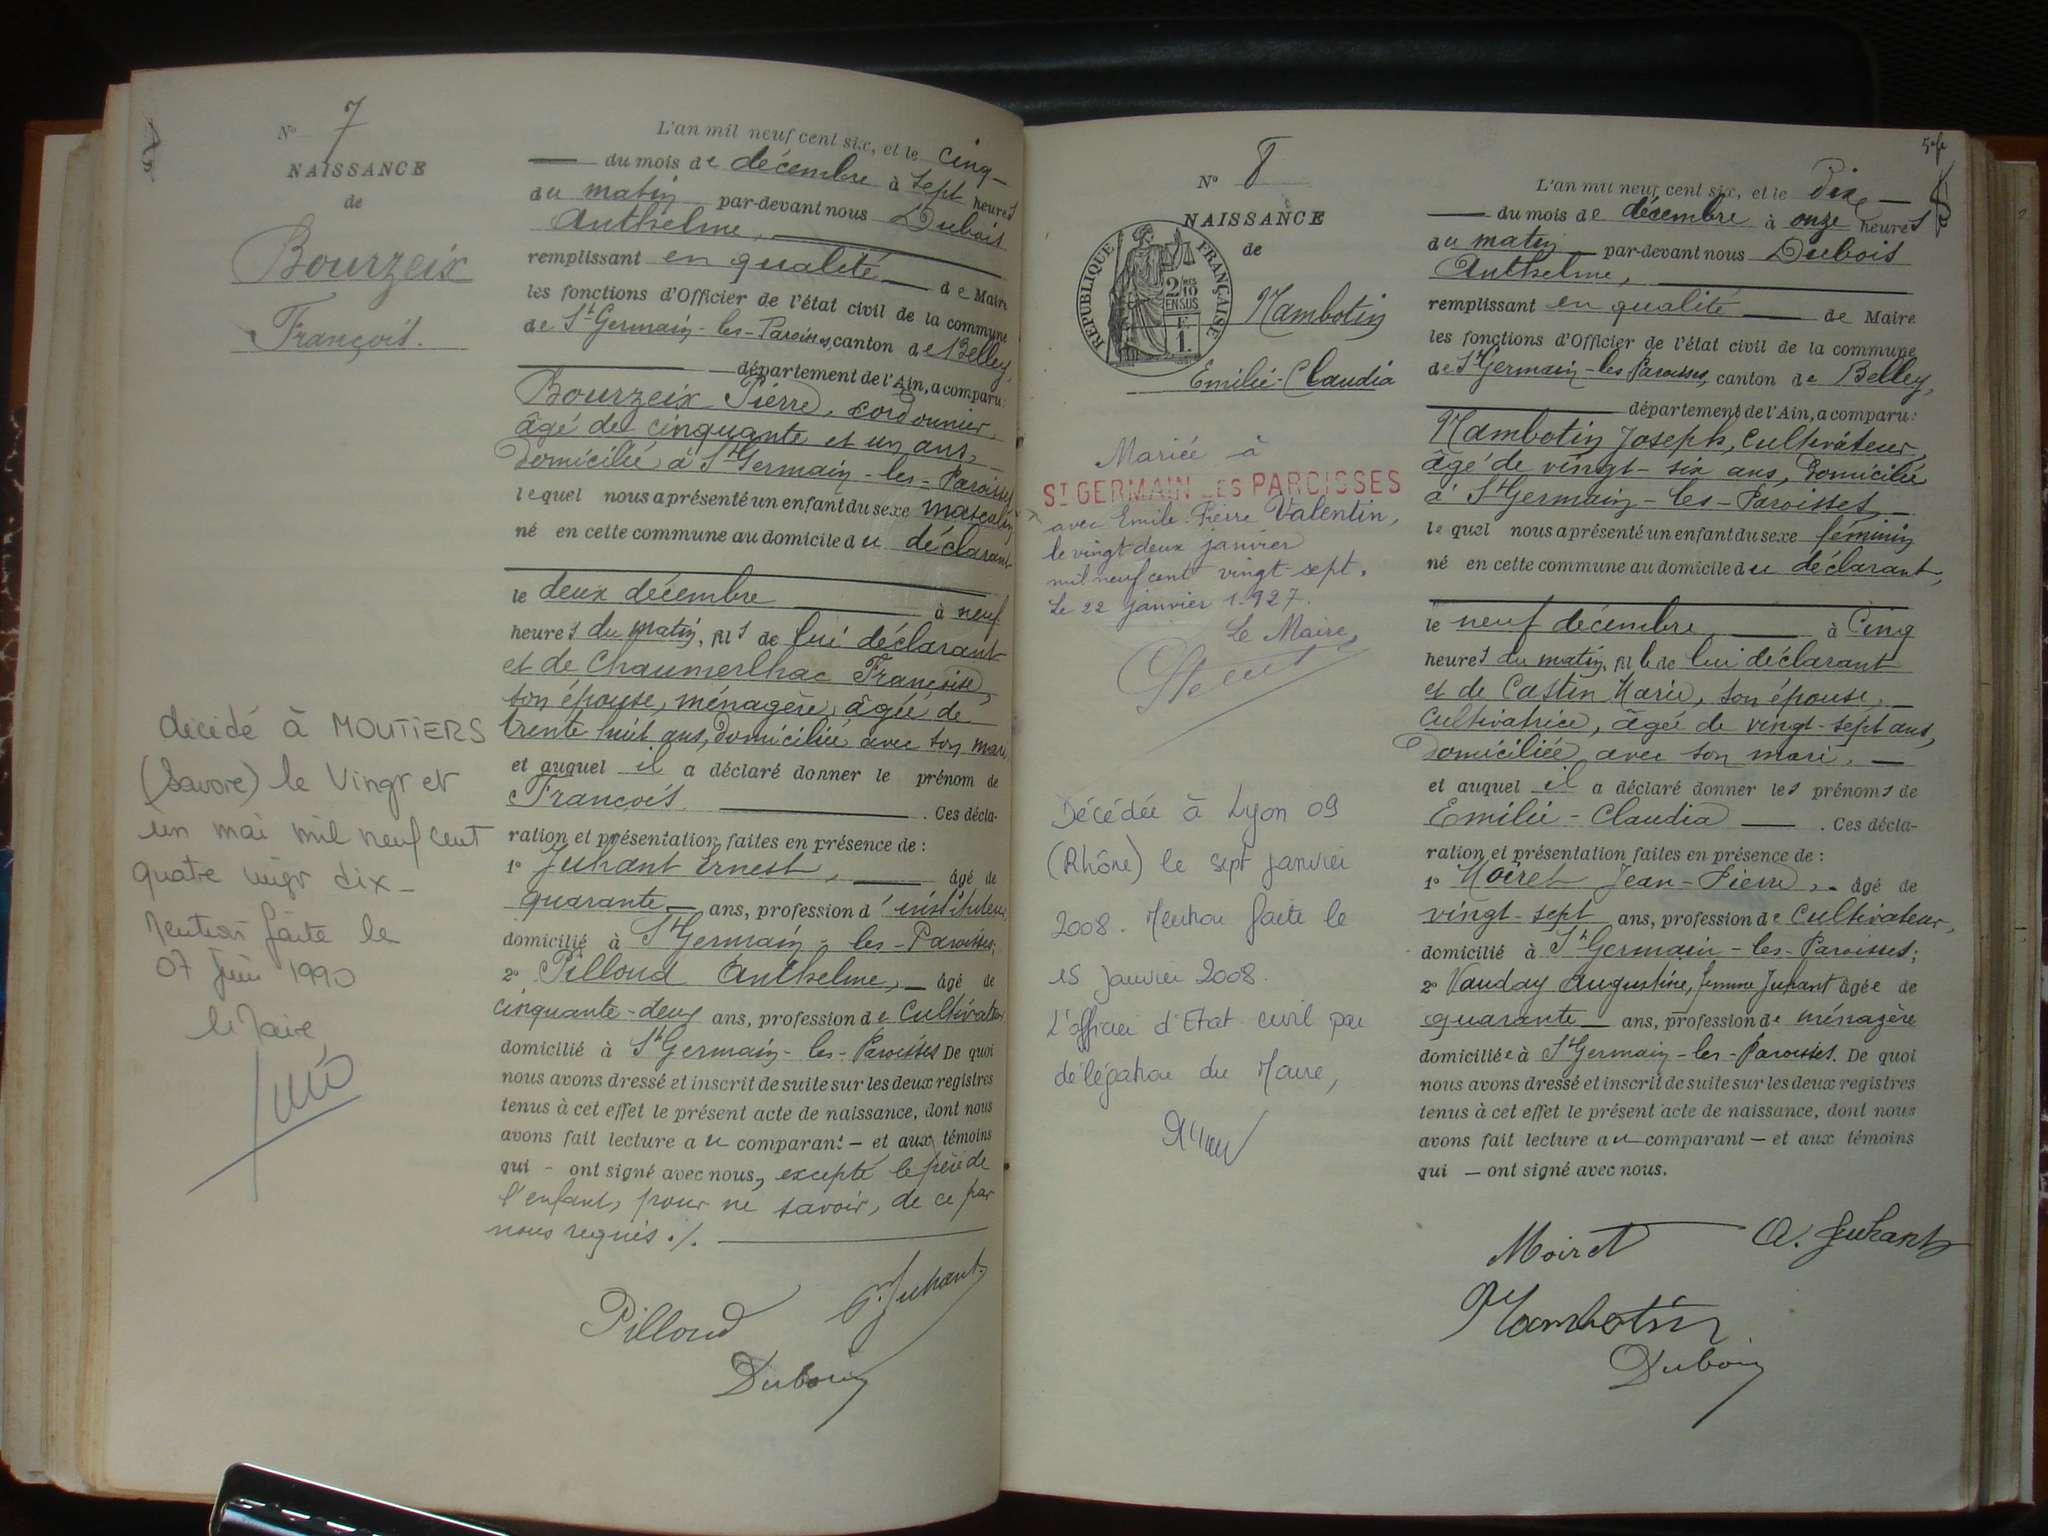 N° 7
NAISSANCE
de
Bourzeix
François.
décédé à MOUTIERS
(Savoie) le Vingt et
un mai mil neuf cent
quatre vingt dix -
Mention faite le
07 Juin 1990
le Maire,
L'an mil neuf cent six, et le cinq
du mois de décembre à sept heures
du matin par-devant nous Dubois
Anthelme,
remplissant en qualité de Maire
les fonctions d'Officier de l'état civil de la commune
de St Germain-les-Paroisses, canton de Belley,
département de l'Ain, a comparu:
Bourzeix Pierre, cordonnier,
âgé de cinquante et un ans,
domicilié à St Germain-les-Paroisses
lequel nous a présenté un enfant du sexe masculin
né en cette commune au domicile du déclarant
le deux décembre à neuf
heures du matin, fils de lui déclarant
et de Chaumerlhac Françoise,
son épouse, ménagère, âgée de
trente huit ans, domiciliée avec son mari,
et auquel il a déclaré donner le prénom de
François. Ces décla-
ration et présentation faites en présence de :
1° Juhant Ernest, âgé de
quarante ans, profession d'instituteur
domicilié à St Germain-les-Paroisses;
2° Pilloud Anthelme, âgé de
cinquante-deux ans, profession de Cultivateur
domicilié à St Germain-les-Paroisses De quoi
nous avons dressé et inscrit de suite sur les deux registres
tenus à cet effet le présent acte de naissance, dont nous
avons fait lecture au comparant - et aux témoins
qui - ont signé avec nous, excepté le père de
l'enfant, pour ne savoir, de ce par
nous requis ./.
Pilloud Juhant
Dubois
N° 8
NAISSANCE
de
REPUBLIQUE FRANÇAISE
2 10 EN SUS
F. 1.
Mambotin
Emilie-Claudia
Mariée à
ST GERMAIN LES PAROISSES
avec Emile-Pierre Valentin,
le vingt deux janvier
mil neuf cent vingt-sept.
Le 22 janvier 1927.
Le Maire,
Décédée à Lyon 09
(Rhône) le sept janvier
2008. Mention faite le
15 janvier 2008.
L'officier d'Etat civil par
délégation du Maire,
L'an mil neuf cent six, et le Dix
du mois de décembre à onze heures
du matin par-devant nous Dubois
Anthelme,
remplissant en qualité de Maire
les fonctions d'Officier de l'état civil de la commune
de St Germain-les-Paroisses, canton de Belley,
département de l'Ain, a comparu:
Mambotin Joseph, Cultivateur,
âgé de vingt-six ans, domicilié
à St Germain-les-Paroisses,
lequel nous a présenté un enfant du sexe féminin
né en cette commune au domicile du déclarant,
le neuf décembre à cinq
heures du matin, fille de lui déclarant
et de Castin Marie, son épouse,
cultivatrice, âgée de vingt-sept ans,
domiciliée avec son mari,
et auquel il a déclaré donner les prénoms de
Emilie-Claudia. Ces décla-
ration et présentation faites en présence de :
1° Moiret Jean-Pierre, âgé de
vingt-sept ans, profession de cultivateur,
domicilié à St Germain-les-Paroisses;
2° Vauday Augustine, femme Juhant âgée de
quarante ans, profession de ménagère
domiciliée à St Germain-les-Paroisses. De quoi
nous avons dressé et inscrit de suite sur les deux registres
tenus à cet effet le présent acte de naissance, dont nous
avons fait lecture au comparant - et aux témoins
qui - ont signé avec nous.
Moiret A. Juhant
Mambotin
Dubois